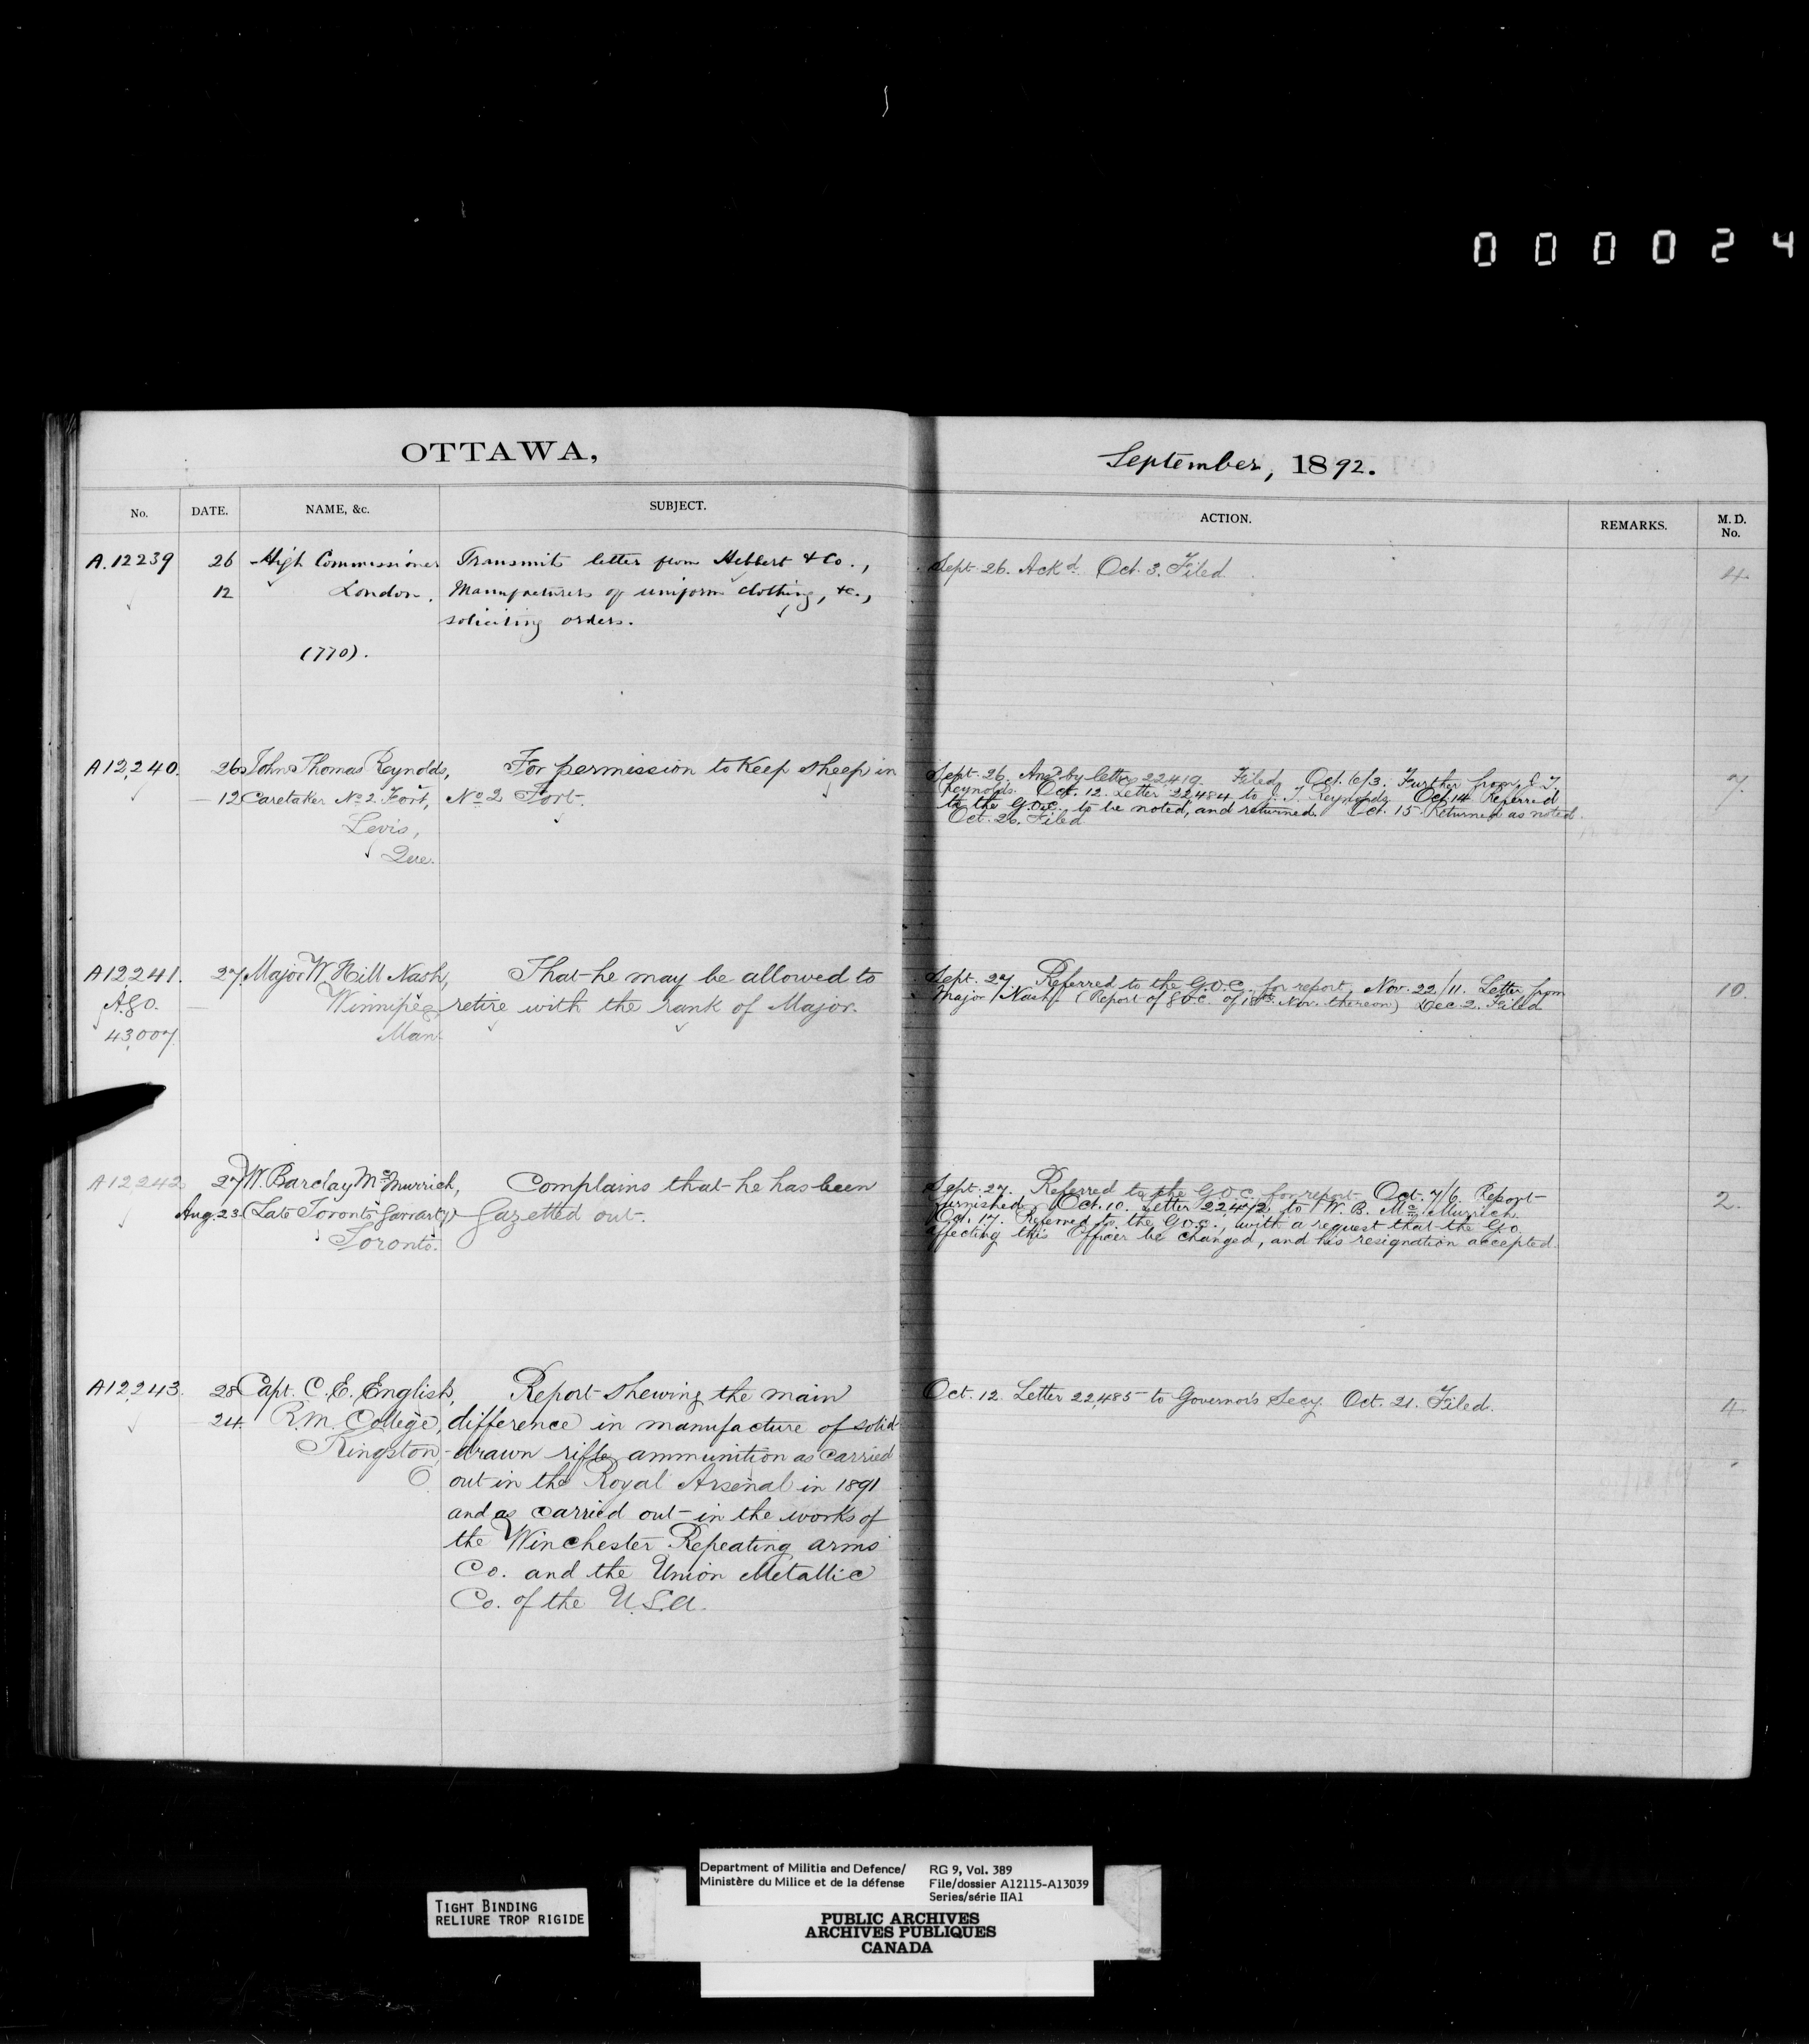 000024
OTTAWA,
September, 1892.
No. DATE. NAME, &c. SUBJECT. ACTION. REMARKS. M. D. No.
A.12239 26 High Commissioner Transmits letter from Hebbert & Co., Sept. 26. Ackd. Oct. 3. Filed. 4
12 London. Manufacturers of uniform clothing, &c.,
soliciting orders.
(770).
A12,240. 26 John Thomas Reynolds, For permission to Keep sheep in
12 Caretaker No 2 Fort, No 2 Fort.
Levis,
Que.
Sept. 26. Ansd by letter 22419. Filed, Oct. 6/3. Further from J. T.
Reynolds. Oct. 12. Letter 22,484 to J. T. Reynolds. Oct. 14 Referred
to the G.O.C., to be noted, and returned. Oct. 15. Returned as noted.
Oct. 26. Filed
7.
A12,241. 27 Major W. Hill Nash, That he may be allowed to
A.G.O. Winnipeg, retire with the rank of Major.
43,007. Man.
Sept. 27 Referred to the G.O.C. for report, Nov. 22/11. Letter from
Major Nash (Report of G.O.C. of 18th Nov. thereon) Dec. 2. Filed
10.
A12,242 27 W. Barclay McMurrich, Complains that he has been
Aug. 23. (Late Toronto Garr. Arty) Gazetted out.
Toronto.
Sept. 27. Referred to the G.O.C. for report Oct. 7/6. Report
furnished, Oct. 10. Letter 22,472 to W. B. McMurrich
Oct. 17. Referred to the G.O.C., with a request that the G.O.
affecting this Officer be changed, and his resignation accepted.
2.
A12,243. 28 Capt. C. E. English, Report shewing the main Oct. 12. Letter 22,485 to Governor's Secy. Oct. 21. Filed. 4
24. R.M. College, difference in manufacture of solid
Kingston, drawn rifle ammunition as carried
O. out in the Royal Arsenal in 1891
and as carried out in the works of
the Winchester Repeating arms
Co. and the Union Metallic
Co. of the U.S.A.
Department of Militia and Defence/
Ministère du Milice et de la défense
RG 9, Vol. 389
File/dossier A12115-A13039
Series/série IIA1
TIGHT BINDING
RELIURE TROP RIGIDE
PUBLIC ARCHIVES
ARCHIVES PUBLIQUES
CANADA